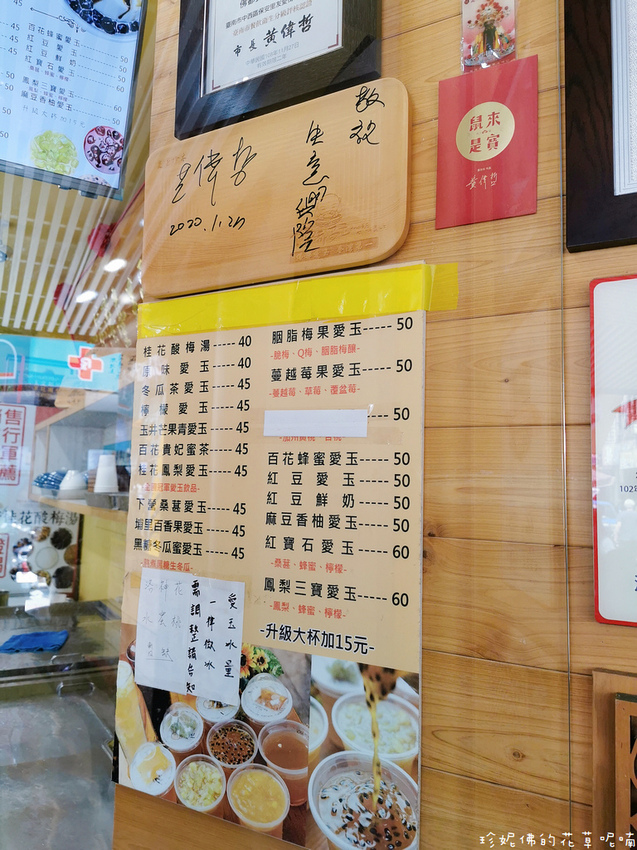 百花蜂蜜愛玉 50
紅豆愛玉 50
紅豆鮮奶 50
紅寶石愛玉 50
鳳梨三寶愛玉 60
麻豆香柚愛玉 50
市長 黃偉哲
敬祝
生意興隆
黃偉哲
2020.1.20
鼠來
是寶
黃偉哲
桂花酸梅湯-----40
原味愛玉-----40
冬瓜茶愛玉-----45
檸檬愛玉-----45
玉井芒果青愛玉---45
百花貴妃蜜茶----45
桂花鳳梨愛玉----45
下營桑葚愛玉----45
埔里百香果愛玉---45
黑糖冬瓜蜜愛玉---45
胭脂梅果愛玉-----50
-脆梅、Q梅、胭脂梅釀-
蔓越莓果愛玉-----50
-蔓越莓、草莓、覆盆莓-
-----50
百花蜂蜜愛玉-----50
紅豆愛玉-----50
紅豆鮮奶-----50
麻豆香柚愛玉-----50
紅寶石愛玉-----60
-桑葚、蜂蜜、檸檬-
鳳梨三寶愛玉-----60
-鳳梨、蜂蜜、檸檬-
-升級大杯加15元-
愛玉冰量
一律微冰
需調整請告知
桂花酸梅湯
珍妮佛的花草呢喃